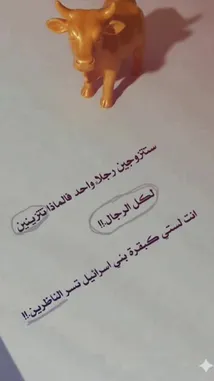 ستتزوجين رجلا واحد فالماذا تتزينين
لكل الرجال!!
انت لستي كبقرة بني اسرائيل تسر الناظرين!!